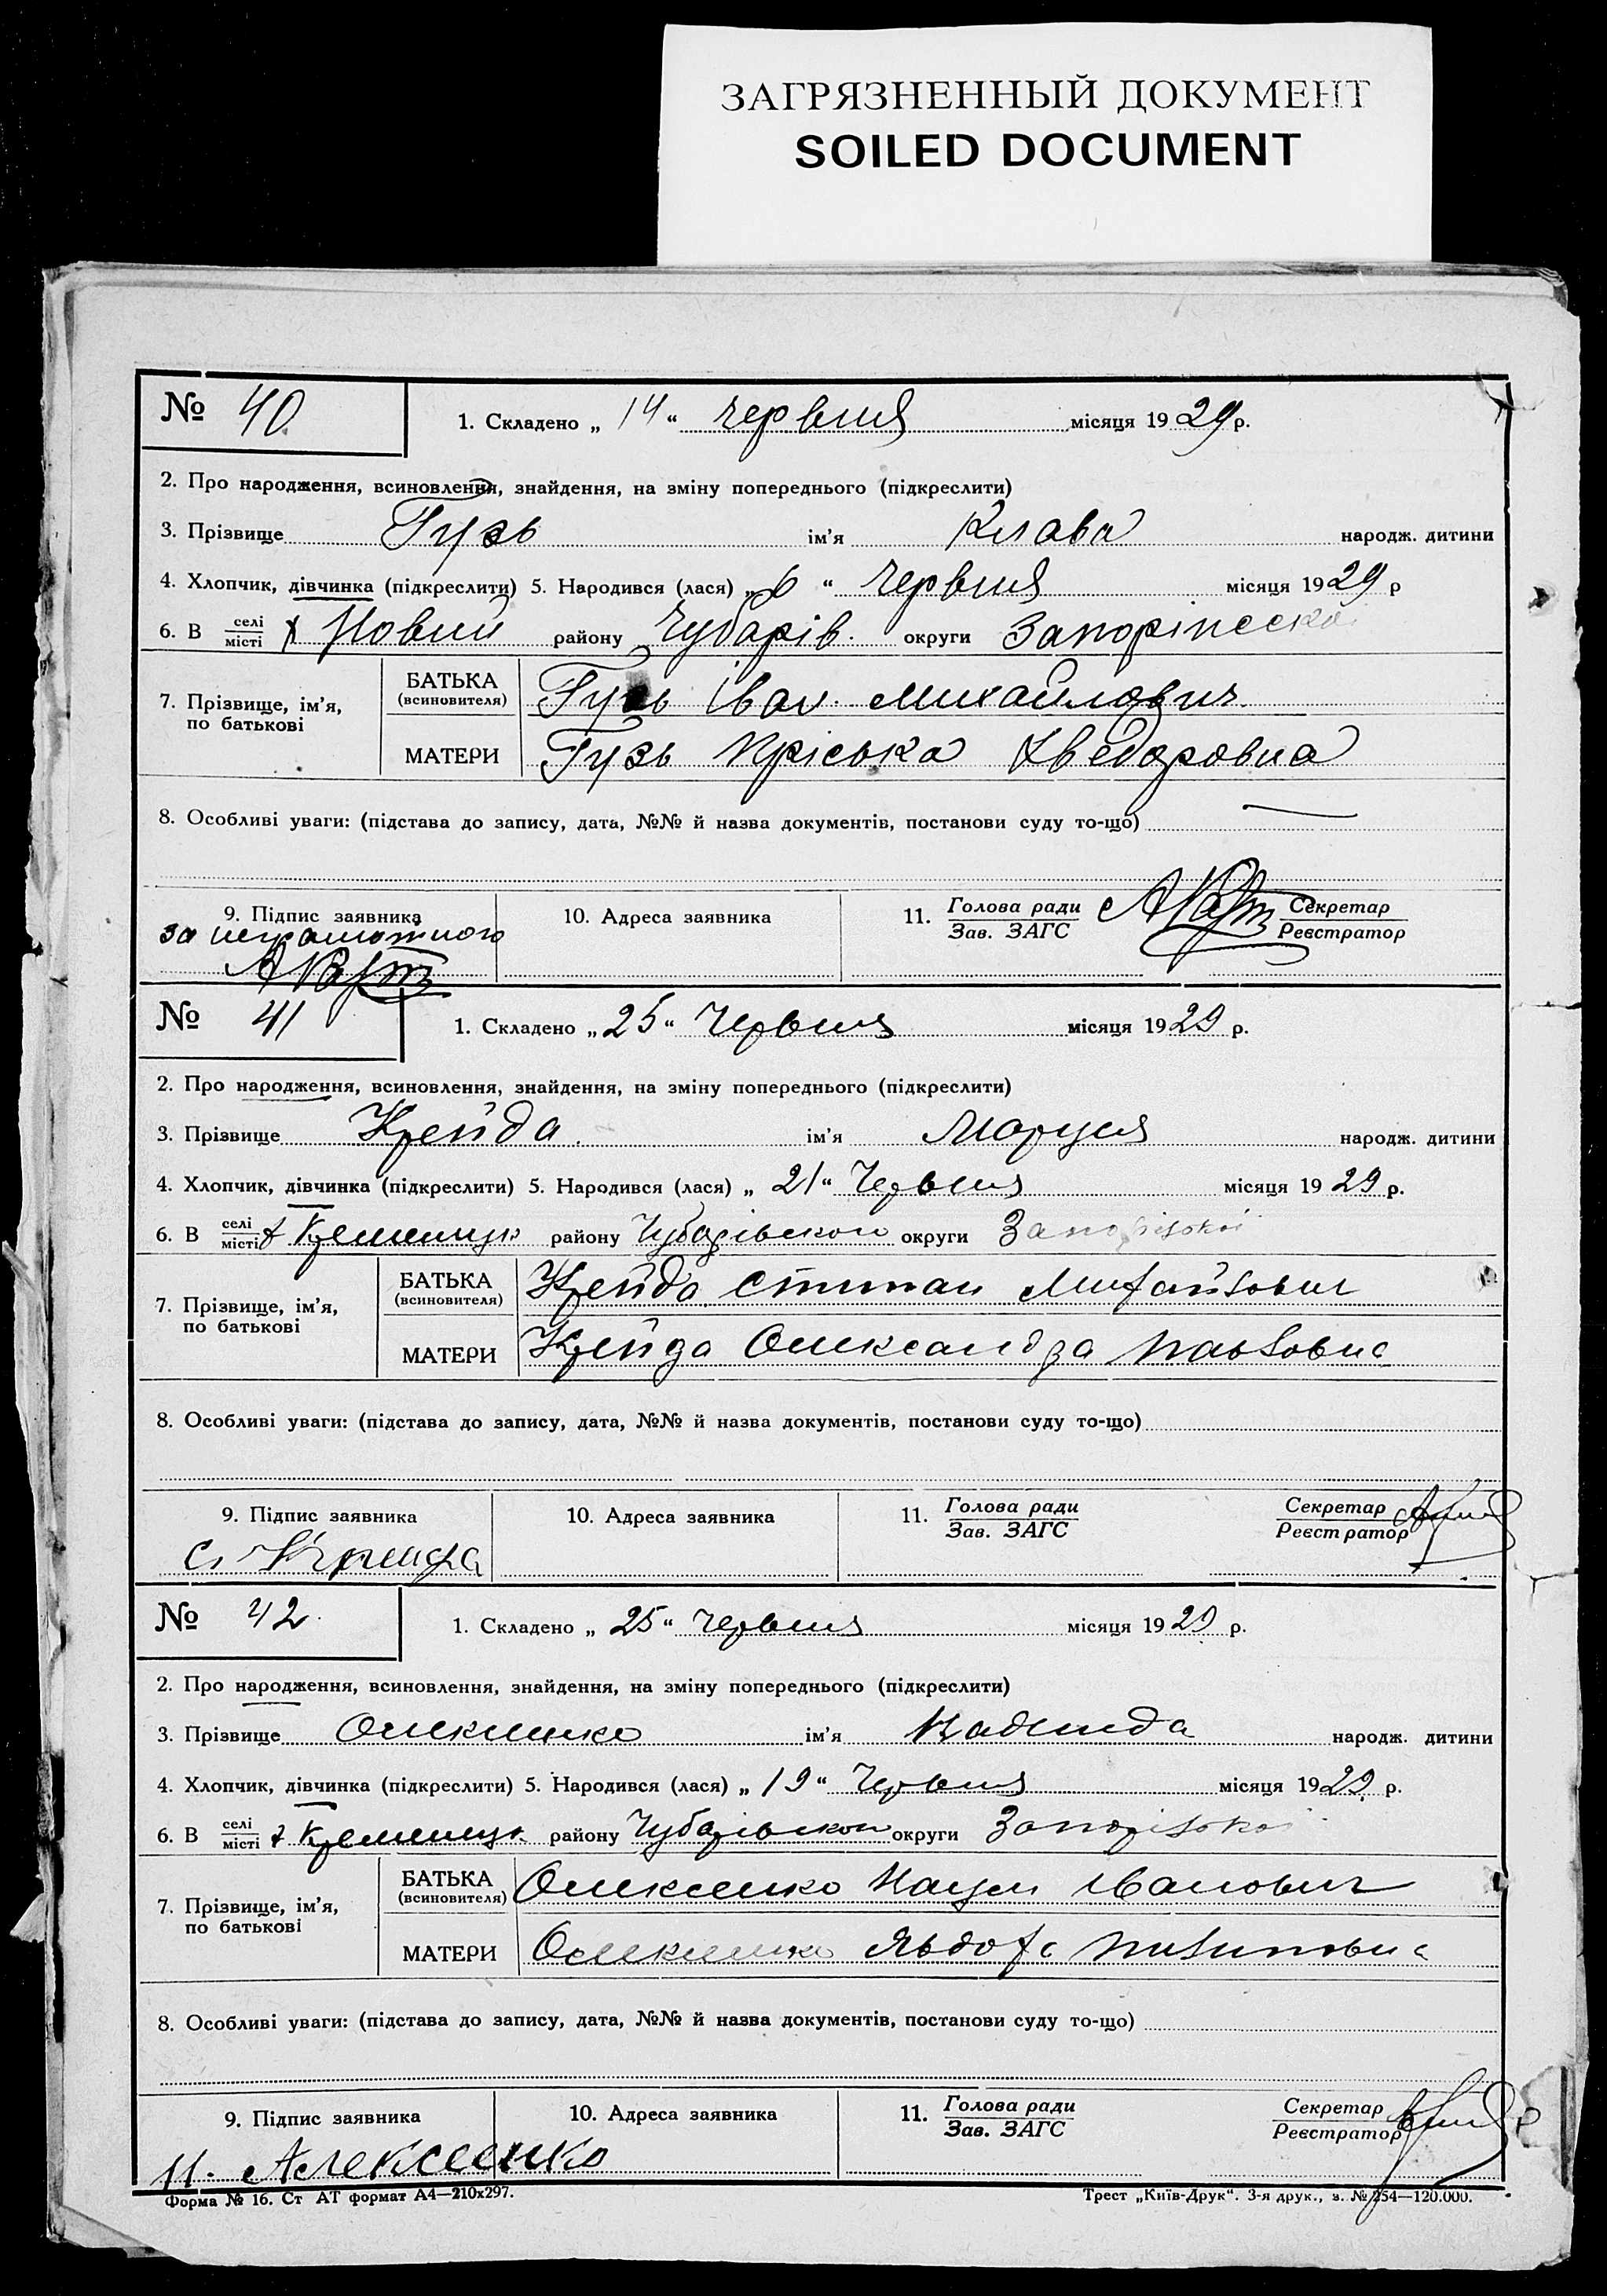 ЗАГРЯЗНЕННЫЙ ДОКУМЕНТ
SOILED DOCUMENT
№ 40 1. Складено „ 14 “ червня місяця 1929 р.
2. Про народження, всиновлення, знайдення, на зміну попереднього (підкреслити)
3. Прізвище Гузь ім'я Клава народж. дитини
4. Хлопчик, дівчинка (підкреслити) 5. Народився (лася) „ 6 “ червня місяця 1929 р
6. В селі/місті х Новий району Чубарів. округи
7. Прізвище, ім'я, по батькові
БАТЬКА (всиновителя) Гузь Іван Михайлович
МАТЕРИ Гузь Пріська Хведоровна
8. Особливі уваги: (підстава до запису, дата, №№ й назва документів, постанови суду то-що) —
9. Підпис заявника 10. Адреса заявника 11. Голова ради/Зав. ЗАГС Секретар/Реєстратор
за неграмотного
№ 41 1. Складено „ 25 “ Червня місяця 1929 р.
2. Про народження, всиновлення, знайдення, на зміну попереднього (підкреслити)
3. Прізвище Крейда ім'я Маруся народж. дитини
4. Хлопчик, дівчинка (підкреслити) 5. Народився (лася) „ 21 “ Червня місяця 1929 р.
6. В селі/місті району Чубарівського округи
7. Прізвище, ім'я, по батькові
БАТЬКА (всиновителя) Крейда Степан Михайлович
МАТЕРИ Крейда Олександра Павловна
8. Особливі уваги: (підстава до запису, дата, №№ й назва документів, постанови суду то-що)
9. Підпис заявника 10. Адреса заявника 11. Голова ради/Зав. ЗАГС Секретар/Реєстратор
№ 42 1. Складено „ 25 “ Червня місяця 1929 р.
2. Про народження, всиновлення, знайдення, на зміну попереднього (підкреслити)
3. Прізвище ім'я народж. дитини
4. Хлопчик, дівчинка (підкреслити) 5. Народився (лася) „ 19 “ Червня місяця 1929 р.
6. В селі/місті району Чубарівського округи
7. Прізвище, ім'я, по батькові
БАТЬКА (всиновителя) Іванович
МАТЕРИ
8. Особливі уваги: (підстава до запису, дата, №№ й назва документів, постанови суду то-що)
9. Підпис заявника 10. Адреса заявника 11. Голова ради/Зав. ЗАГС Секретар/Реєстратор
Н. Алексеенко
Форма № 16. Ст АТ формат А4—210х297. Трест „Київ-Друк“. 3-я друк., з. № 254—120.000.